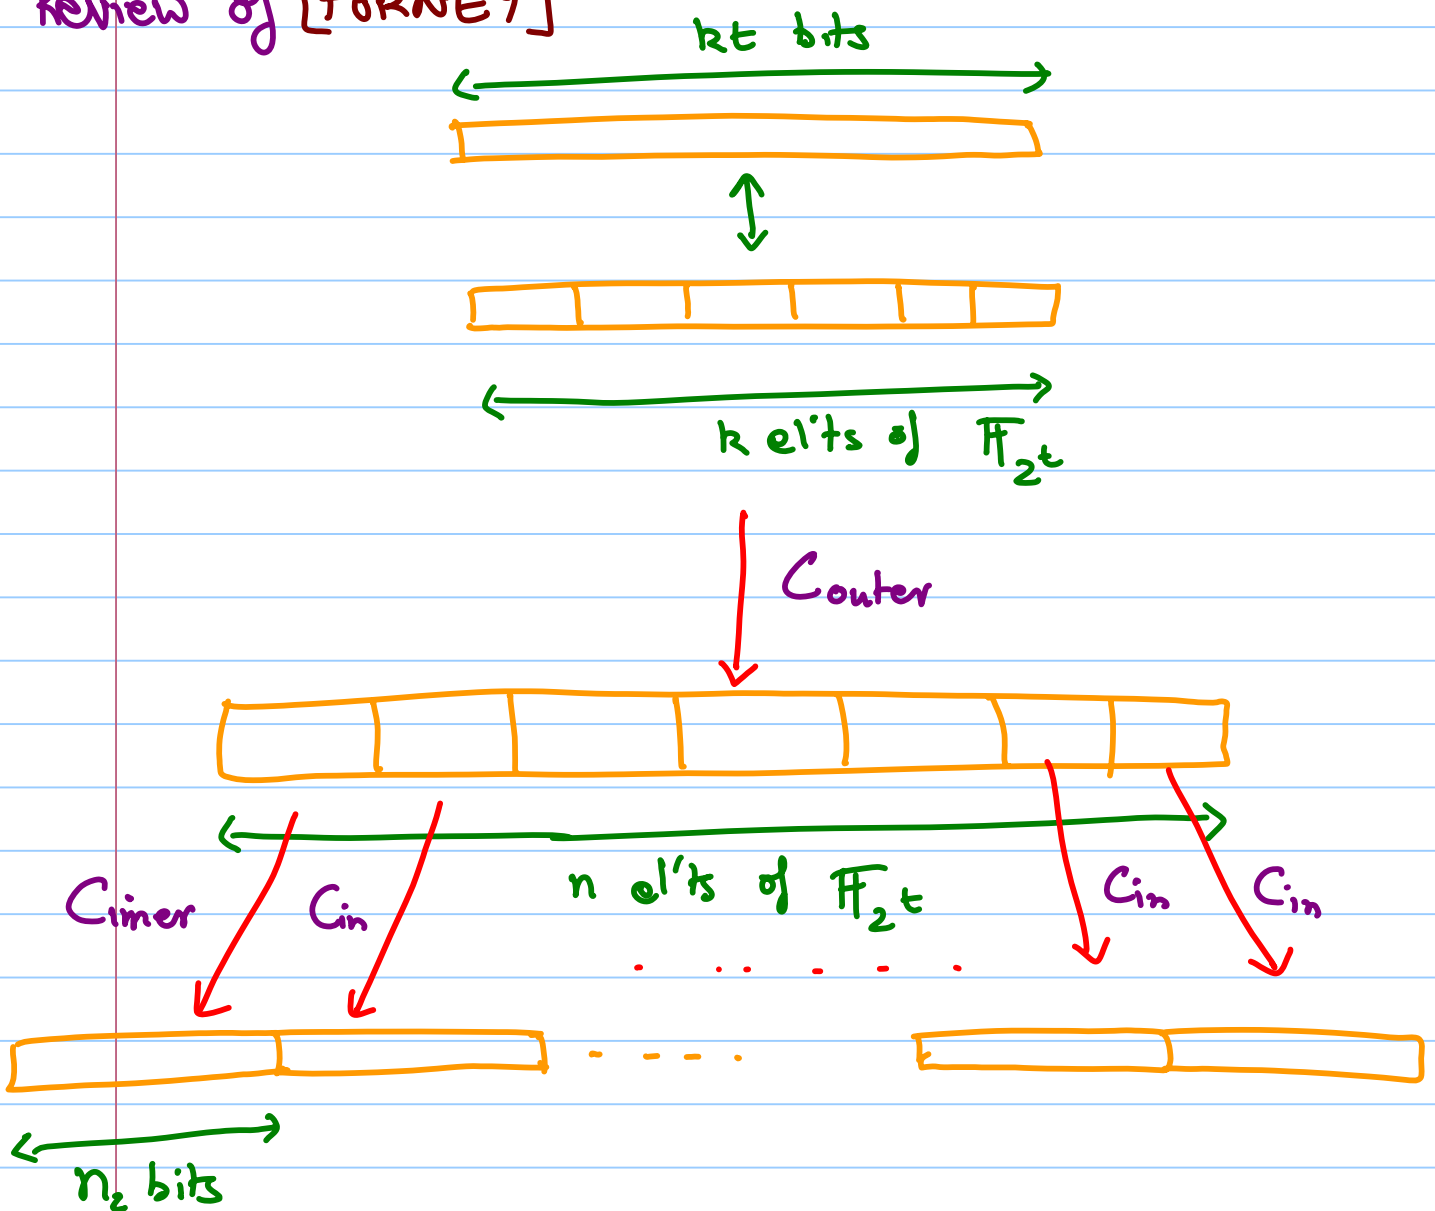 Review of [FORNEY]
kt bits
k el'ts of 𝔽_2^t
Couter
n el'ts of 𝔽_2^t
Cinner Cin Cin Cin
n_2 bits